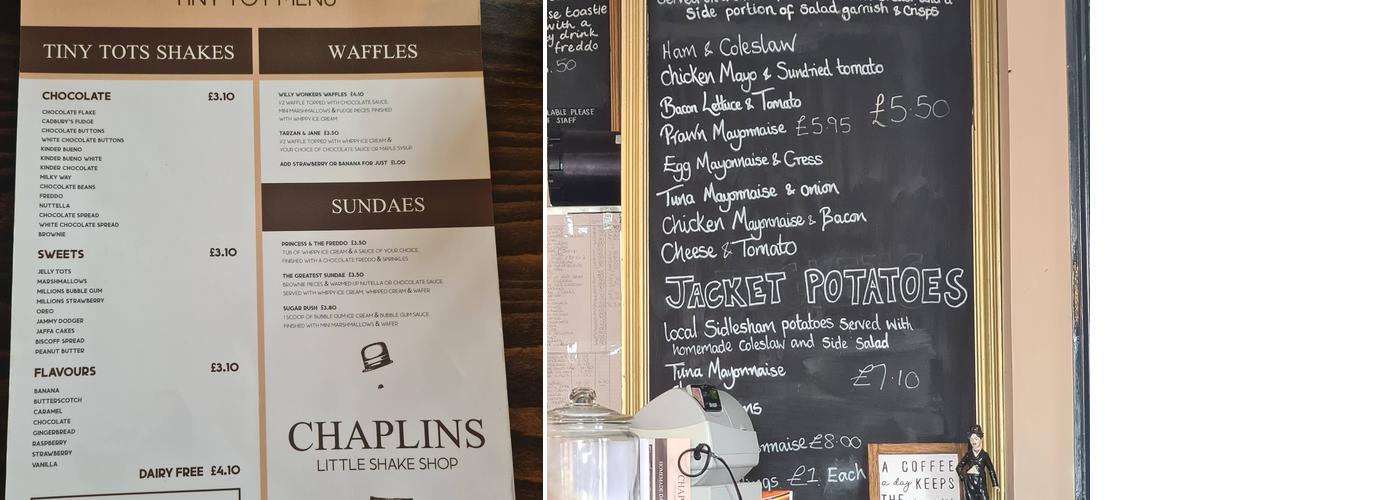 TINY TOT MENU
TINY TOTS SHAKES
CHOCOLATE £3.10
CHOCOLATE FLAKE
CADBURY'S FUDGE
CHOCOLATE BUTTONS
WHITE CHOCOLATE BUTTONS
KINDER BUENO
KINDER BUENO WHITE
KINDER CHOCOLATE
MILKY WAY
CHOCOLATE BEANS
FREDDO
NUTTELLA
CHOCOLATE SPREAD
WHITE CHOCOLATE SPREAD
BROWNIE
SWEETS £3.10
JELLY TOTS
MARSHMALLOWS
MILLIONS BUBBLE GUM
MILLIONS STRAWBERRY
OREO
JAMMY DODGER
JAFFA CAKES
BISCOFF SPREAD
PEANUT BUTTER
FLAVOURS £3.10
BANANA
BUTTERSCOTCH
CARAMEL
CHOCOLATE
GINGERBREAD
RASPBERRY
STRAWBERRY
VANILLA
DAIRY FREE £4.10
WAFFLES
WILLY WONKERS WAFFLES £4.10
1/2 WAFFLE TOPPED WITH CHOCOLATE SAUCE,
MINI MARSHMALLOWS & FUDGE PIECES. FINISHED
WITH WHIPPY ICE CREAM
TARZAN & JANE £3.50
1/2 WAFFLE TOPPED WITH WHIPPY ICE CREAM &
YOUR CHOICE OF CHOCOLATE SAUCE OR MAPLE SYRUP
ADD STRAWBERRY OR BANANA FOR JUST £1.00
SUNDAES
PRINCESS & THE FREDDO £3.50
TUB OF WHIPPY ICE CREAM & A SAUCE OF YOUR CHOICE.
FINISHED WITH A CHOCOLATE FREDDO & SPRINKLES
THE GREATEST SUNDAE £3.50
BROWNIE PIECES & WARMED UP NUTELLA OR CHOCOLATE SAUCE.
SERVED WITH WHIPPY ICE CREAM, WHIPPED CREAM & WAFER
SUGAR RUSH £3.80
1 SCOOP OF BUBBLE GUM ICE CREAM & BUBBLE GUM SAUCE.
FINISHED WITH MINI MARSHMALLOWS & WAFER
CHAPLINS
LITTLE SHAKE SHOP
se toastie
with a
y drink
freddo
.50
LABLE PLEASE
STAFF
side portion of salad garnish & crisps
Ham & Coleslaw
Chicken Mayo & Sundried tomato
Bacon Lettuce & Tomato £5.50
Prawn Mayonnaise £5.95
Egg Mayonnaise & Cress
Tuna Mayonnaise & onion
Chicken Mayonnaise & Bacon
Cheese & Tomato
JACKET POTATOES
local Sidlesham potatoes served with
homemade coleslaw and side salad
Tuna Mayonnaise £7.10
ns
nnaise £8.00
ngs £1 Each
A COFFEE
a day KEEPS
THE